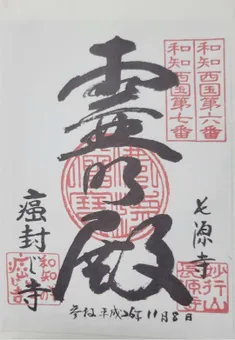 和知西国第六番
和知西国第七番
霊明殿
七源寺
癌封じ寺
参拝 平成26年11月8日